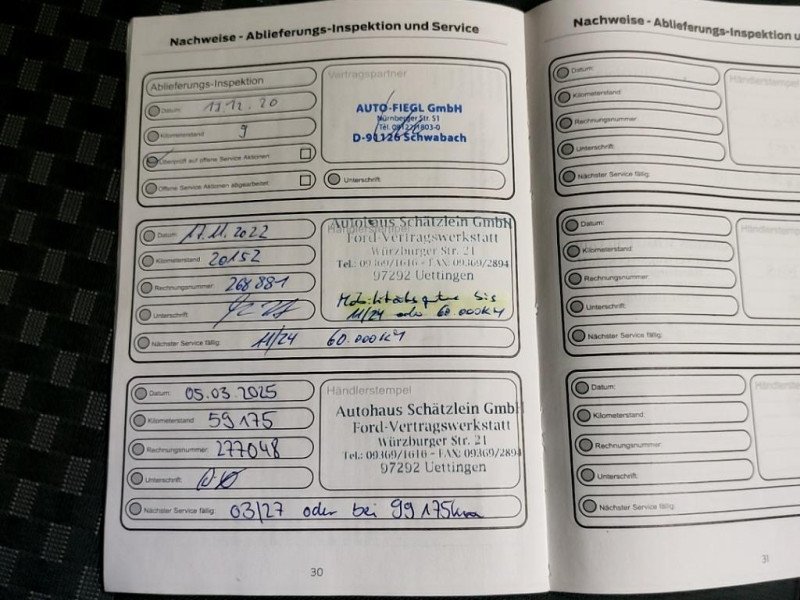 Nachweise - Ablieferungs-Inspektion und Service
Ablieferungs-Inspektion
Datum: 11.12.20
Kilometerstand 9
Überprüft auf offene Service Aktionen:
Offene Service Aktionen abgearbeitet:
Vertragspartner
AUTO-FIEGL GmbH
Nürnberger Str. 51
D-91126 Schwabach
Unterschrift:
Datum: 17.11.2022
Kilometerstand: 20152
Rechnungsnummer: 268881
Unterschrift:
Nächster Service fällig: 11/24 60.000KM
Autohaus Schätzlein GmbH
Ford-Vertragswerkstatt
Würzburger Str. 21
Tel.: 09369/1616 - FAX: 09369/2894
97292 Uettingen
bis
11/24 oder 60.000KM
Datum: 05.03.2025
Kilometerstand: 59175
Rechnungsnummer: 277048
Unterschrift:
Nächster Service fällig: 03/27 oder bei 99175km
Händlerstempel
Autohaus Schätzlein GmbH
Ford-Vertragswerkstatt
Würzburger Str. 21
Tel.: 09369/1616 - FAX: 09369/2894
97292 Uettingen
30
Nachweise - Ablieferungs-Inspektion u
Datum:
Kilometerstand
Rechnungsnummer:
Unterschrift:
Nächster Service fällig:
Händlerstempel
Datum:
Kilometerstand:
Rechnungsnummer:
Unterschrift:
Nächster Service fällig:
Datum:
Kilometerstand:
Rechnungsnummer:
Unterschrift:
Nächster Service fällig:
31